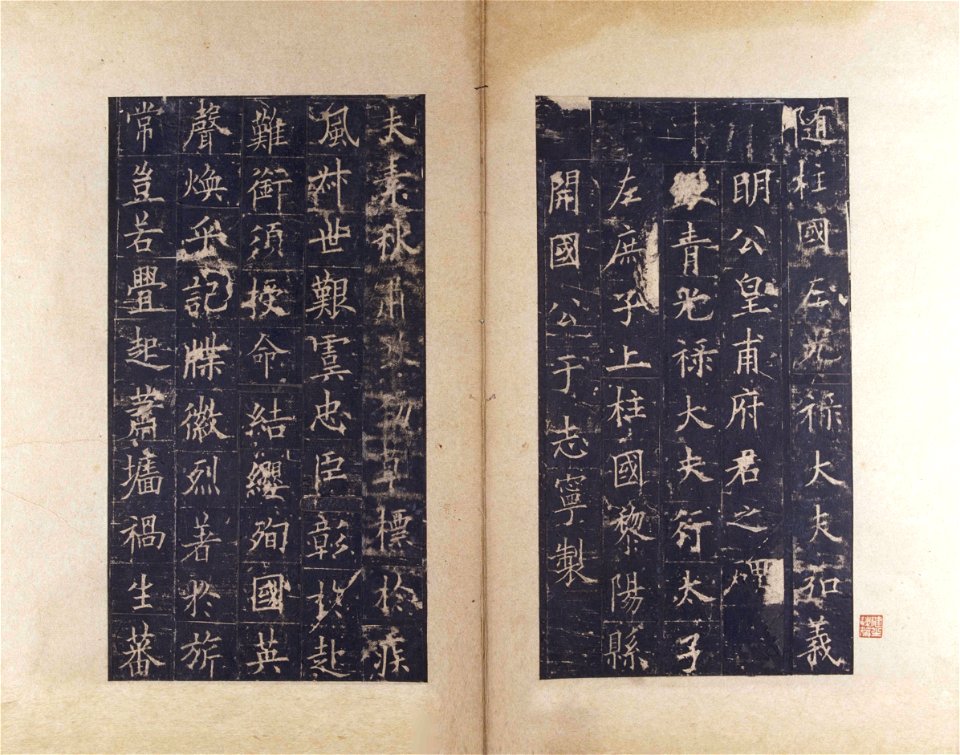 隨柱國左光祿大夫弘義
明公皇甫府君之碑
青光祿大夫行太子
左庶子上柱國黎陽縣
開國公于志寧製
夫素秋肅勁草標於疾
風叔世艱虞忠臣彰於赴
難銜須授命結纓殉國英
聲煥乎記牒徽烈著於旂
常豈若舋起蕭墻禍生蕃